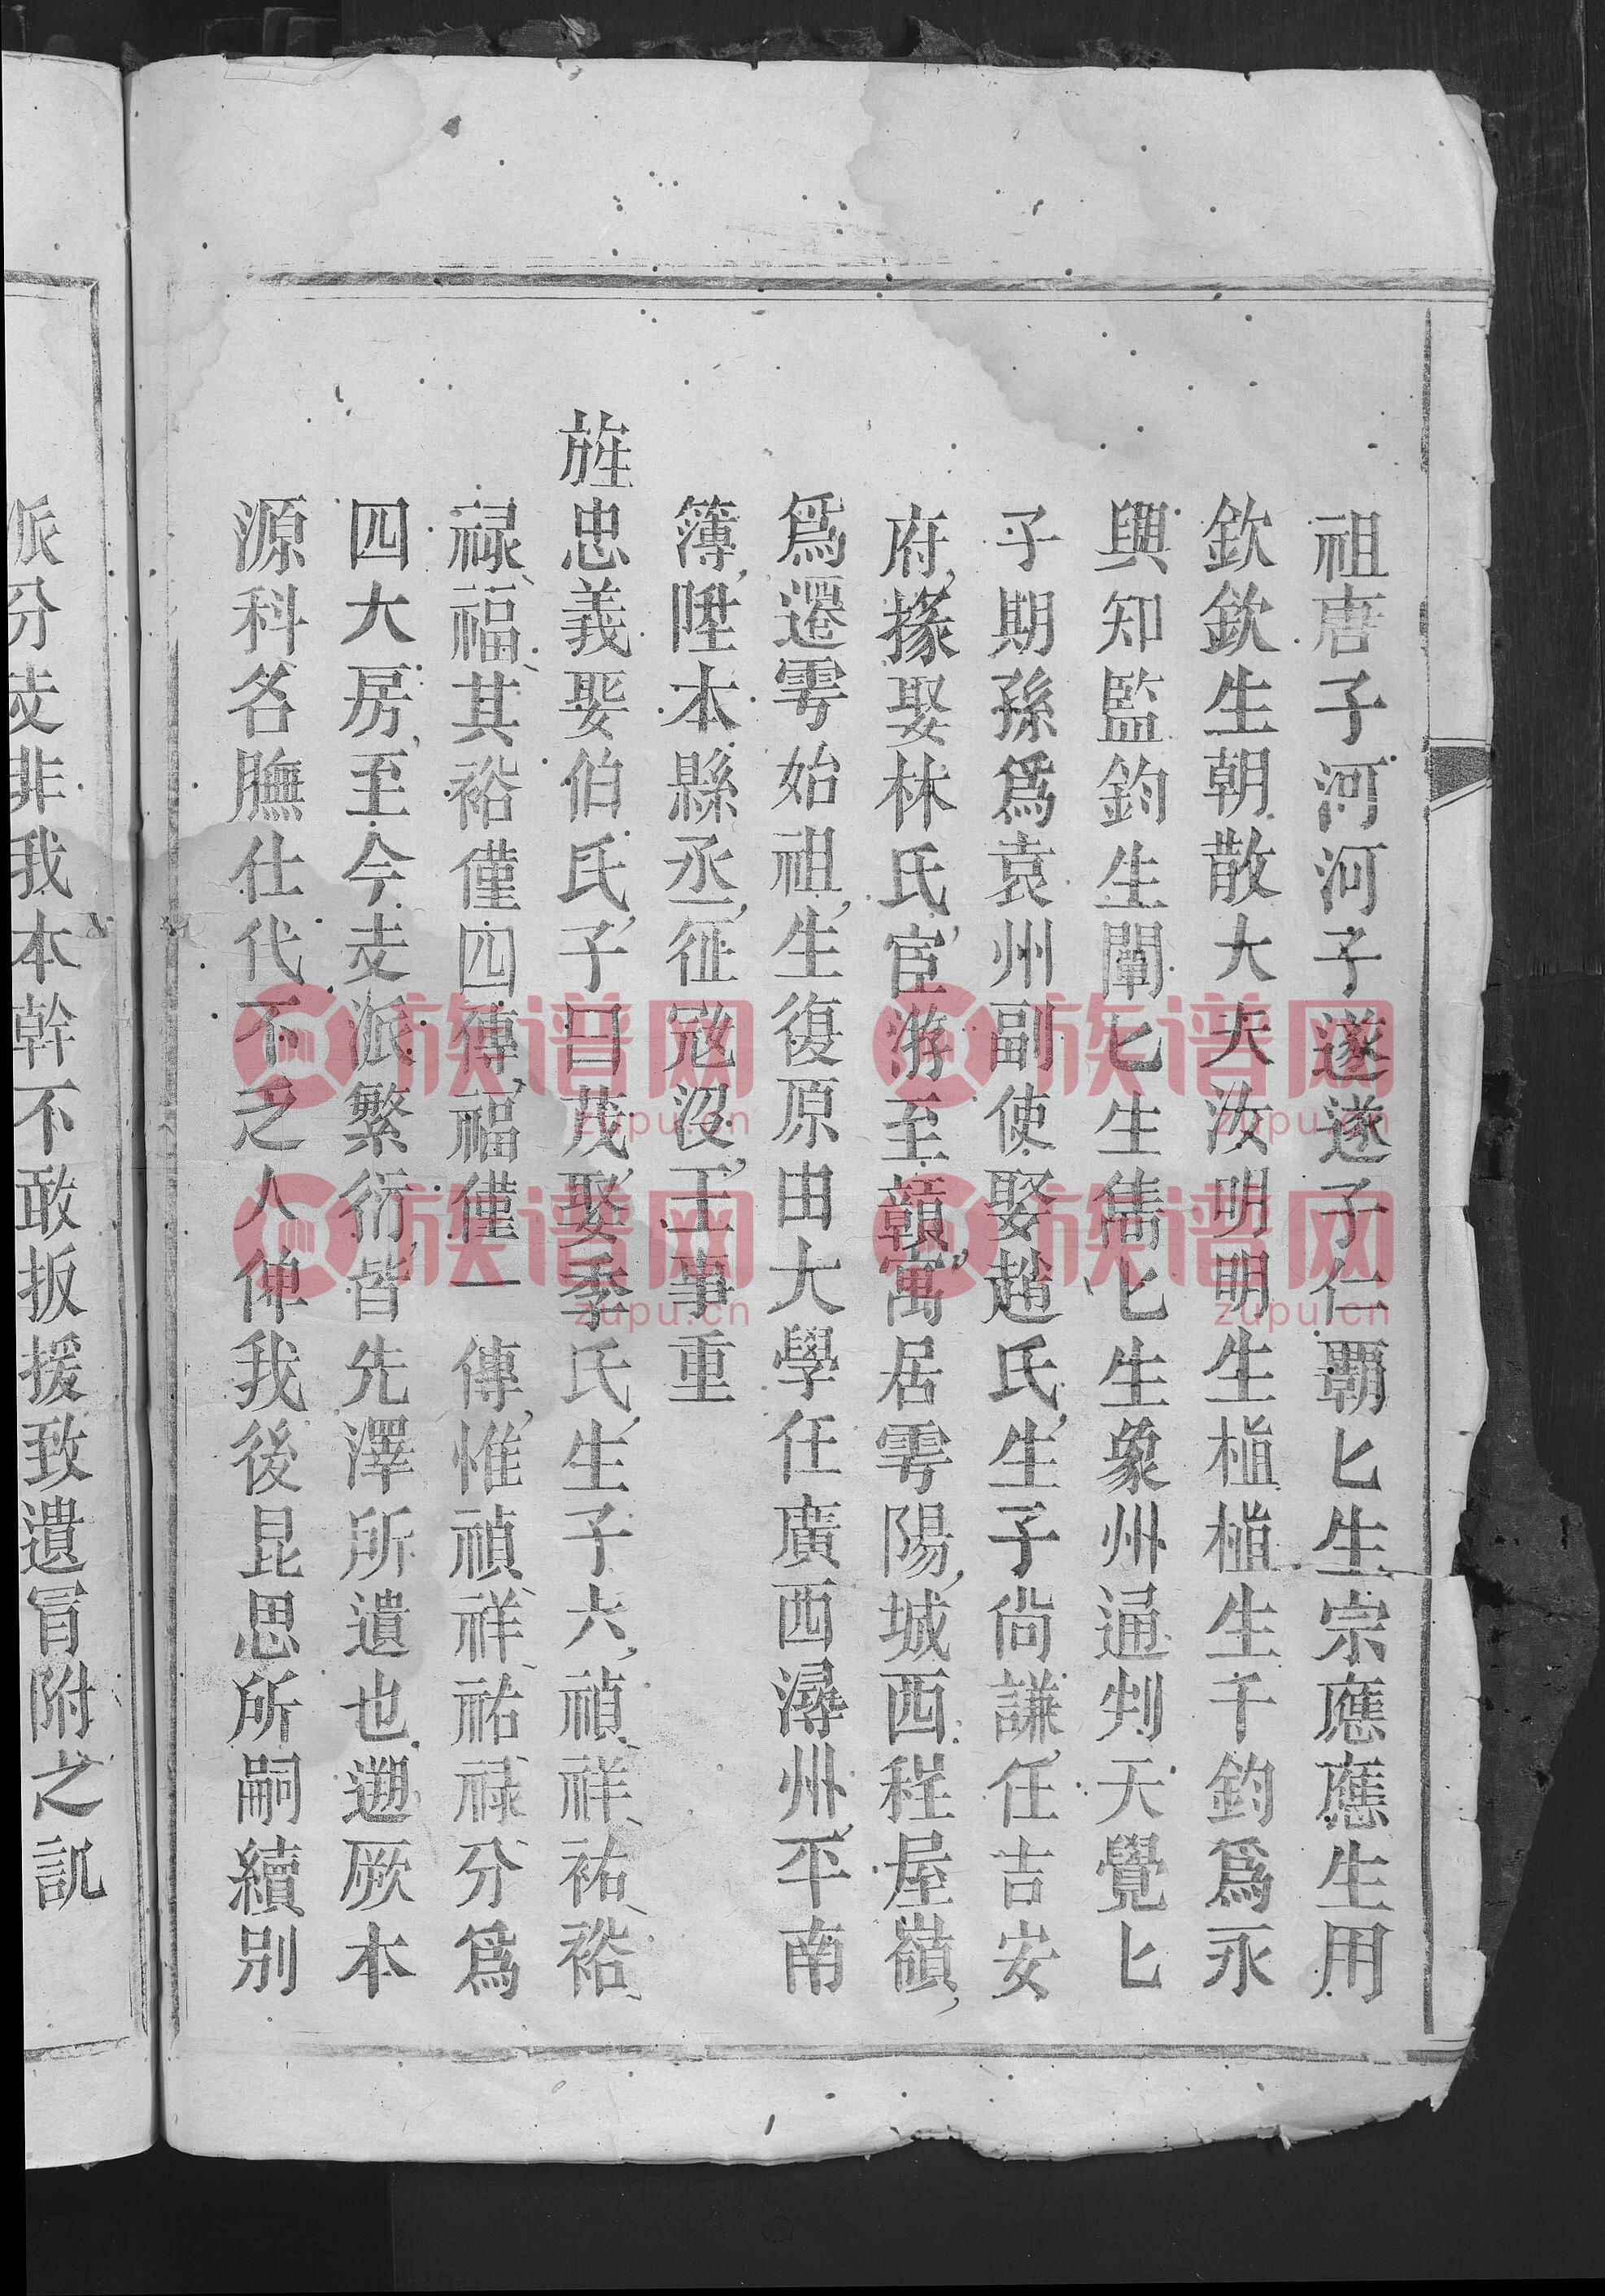 祖唐子河河子遂遂子仁覇匕生宗應應生用
欽欽生朝散大夫汝明明生植植生千鈞爲永
興知監鈞生闡匕生雋匕生象州通判天覺匕
子期孫爲袁州副使娶趙氏生子尙謙任吉安
府掾娶林氏宦游至贛寓居雩陽城西程屋嶺
爲遷雩始祖生復原由大學任廣西潯州平南
簿陞本縣丞征寇没王事重
旌忠義娶伯氏子曰茂娶季氏生子六禎祥祐裕
禄福其裕僅四傳福僅一傳惟禎祥祐禄分爲
四大房至今支派繁衍皆先澤所遺也遡厥本
源科名膴仕代不之人俾我後昆思所嗣續别
派分支非我本幹不敢扳援致遺冐附之訿
族谱网
zupu.cn
族谱网
zupu.cn
族谱网
zupu.cn
族谱网
zupu.cn